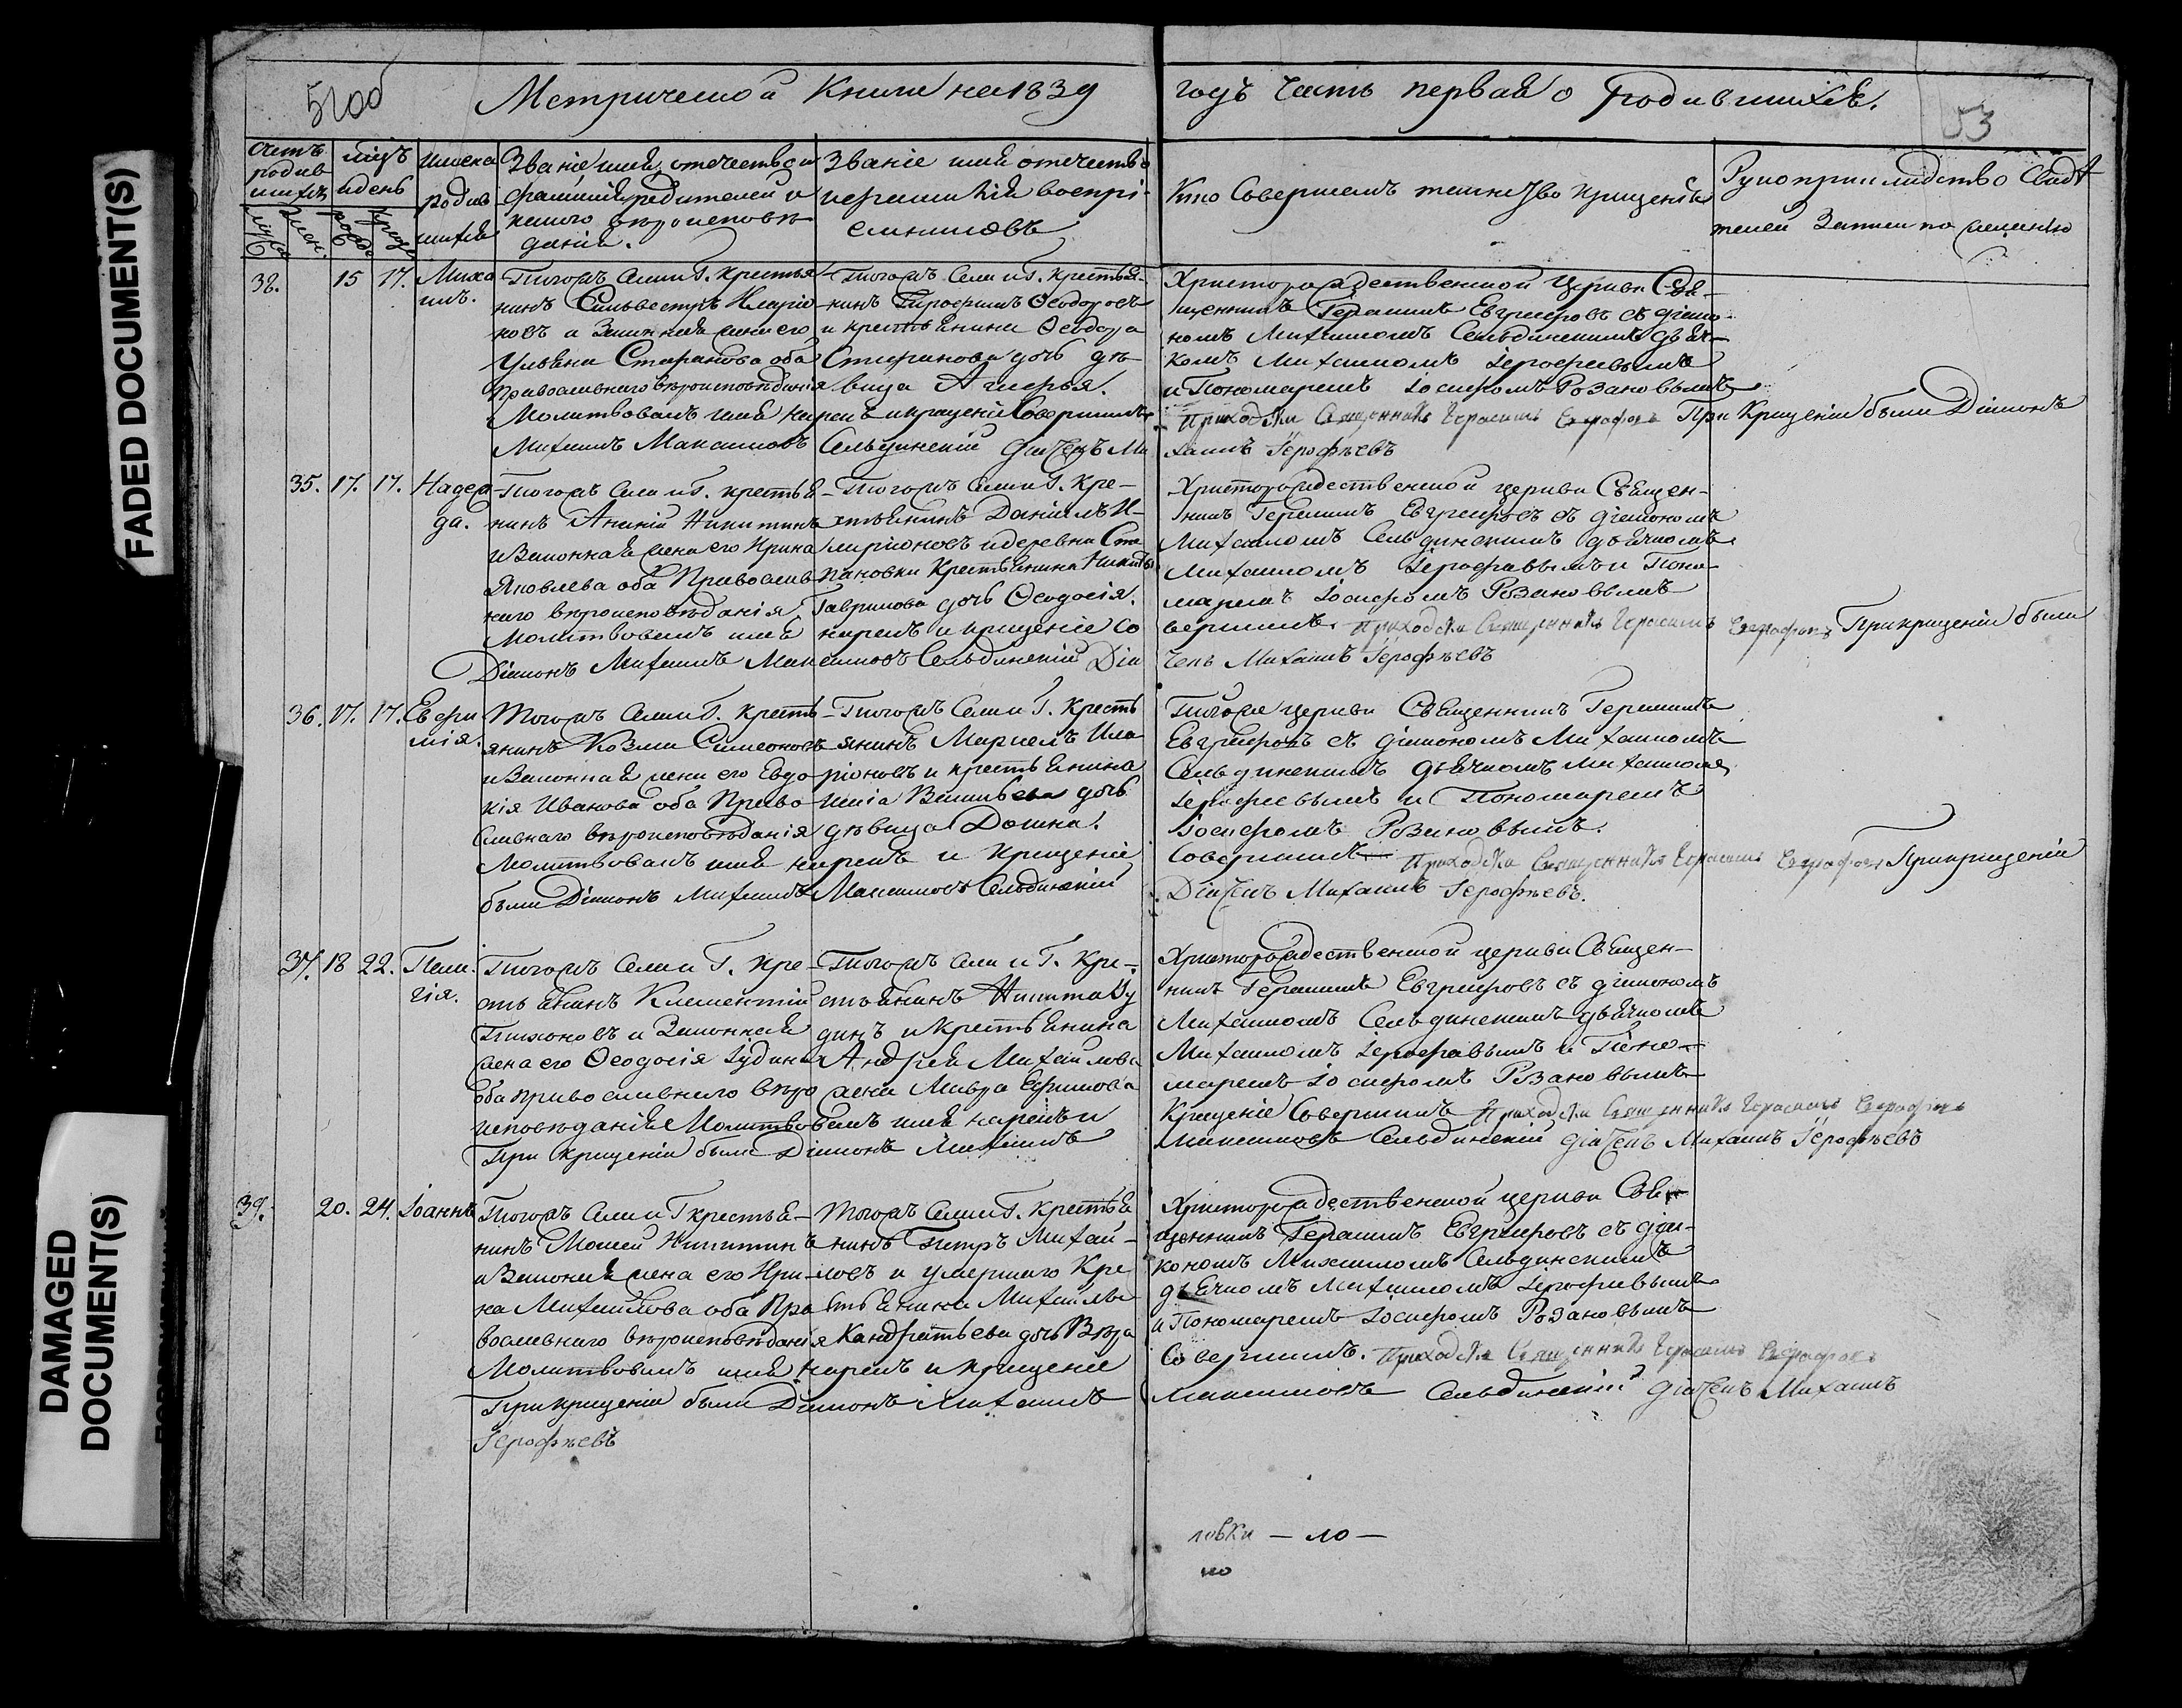 Метрической Книги на 1839
годъ Часть первая о родившихся.
53
Счетъ родившихъ
мѣцъ и день
Имена родившихся
Званіе имя, отечество и фамилія родителей и какого вѣроисповѣданія.
Званіе имя отечество и фамилія воспріемниковъ
Кто Совершалъ таинство крещенія
Рукоприкладство Свидѣтелей Записи по желанію
38.
15 17.
Михаилъ.
Тогожъ Села и Г. крестьянинъ Сильвестръ
и Законная жена его
Ульяна Стефанова оба
Православнаго вѣроисповѣданія
Тогожъ Села и Г. крестьянинъ
Ѳеодоровъ
и крестьянина Ѳеодора
Стефанова дочь дѣвица
Христорождественской Церкви Священникъ
Герасимъ Евграфовъ съ діакономъ
Михаиломъ Сельдинскимъ дьячкомъ
Михаиломъ Іерофеевымъ
и Пономаремъ Іосифомъ Розановымъ
Молитвовалъ имя нарекъ и крещеніе Совершилъ
Приходскій Священникъ Герасимъ Евграфовъ При Крещеніи были Діаконъ
Михаилъ Максимовъ Сельдинскій дьячекъ Михаилъ Іерофѣевъ
35. 17. 17.
Надежда.
Тогожъ Села и Г. крестьянинъ
Ананій Никитинъ
и Законная жена его Ирина
Яковлева оба Православнаго
вѣроисповѣданія.
Тогожъ Села и Г. крестьянинъ
Даніилъ Иларіоновъ
и деревни Степановки
Крестьянина Никиты
Гаврилова дочь Ѳеодосія.
Христорождественской церкви Священникъ
Герасимъ Евграфовъ съ діакономъ
Михаиломъ Сельдинскимъ дьячкомъ
Михаиломъ Іерофеевымъ и Пономаремъ
Іосифомъ Розановымъ
Молитвовалъ имя нарекъ и крещеніе Совершилъ. Приходскій Священникъ Герасимъ Евграфовъ При крещеніи были
Діаконъ Михаилъ Максимовъ Сельдинскій Дьячекъ Михаилъ Іерофѣевъ
36. 17. 17.
Евфимія.
Тогожъ Села и Г. крестьянинъ
Козма Симеоновъ
и Законная жена его Евдокія
Иванова оба Православнаго
вѣроисповѣданія
Тогожъ Села и Г. Крестьянинъ
Маркелъ Иларіоновъ
и крестьянина
Васильева дочь
дѣвица Домна.
Тойже церкви Священникъ Герасимъ
Евграфовъ съ діакономъ Михаиломъ
Сельдинскимъ дьячкомъ Михаиломъ
Іерофеевымъ и Пономаремъ
Іосифомъ Розановымъ.
Молитвовалъ имя нарекъ и крещеніе Совершилъ Приходскій Священникъ Герасимъ Евграфовъ При крещеніи
были Діаконъ Михаилъ Максимовъ Сельдинскій Дьячекъ Михаилъ Іерофѣевъ.
37. 18 22.
Пелагія.
Тогожъ Села и Г. крестьянинъ
Клементій
Тихоновъ и Законная
жена его Ѳеодосія Іудина
оба православнаго вѣроисповѣданія
Тогожъ Села и Г. крестьянинъ
Никита Іудинъ
и крестьянина
Андрея Михаилова
жена Мавра Ефимова
Христорождественской церкви Священникъ
Герасимъ Евграфовъ съ діакономъ
Михаиломъ Сельдинскимъ дьячкомъ
Михаиломъ Іерофеевымъ и Пономаремъ
Іосифомъ Розановымъ
Молитвовалъ имя нарекъ и Крещеніе Совершилъ Приходскій Священникъ Герасимъ Евграфовъ
При крещеніи были Діаконъ Михаилъ Максимовъ Сельдинскій дьячекъ Михаилъ Іерофѣевъ
39.
20. 24.
Іоаннъ
Тогожъ Села и Г крестьянинъ
Моисей Никитинъ
и Законная жена его Ирина
Михайлова оба Православнаго
вѣроисповѣданія
Тогожъ Села и Г. крестьянинъ
Петръ Михайловъ
и умершаго Крестьянина
Михаила
Кандратьева дочь Вѣра
Христорождественской церкви Священникъ
Герасимъ Евграфовъ съ діакономъ
Михаиломъ Сельдинскимъ
дьячкомъ Михаиломъ Іерофеевымъ
и Пономаремъ Іосифомъ Розановымъ
Молитвовалъ имя нарекъ и крещеніе Совершилъ. Приходскій Священникъ Герасимъ Евграфовъ
При крещеніи были Діаконъ Михаилъ Максимовъ Сельдинскій дьячекъ Михаилъ
Іерофѣевъ
FADED DOCUMENT(S)
DAMAGED
DOCUMENT(S)